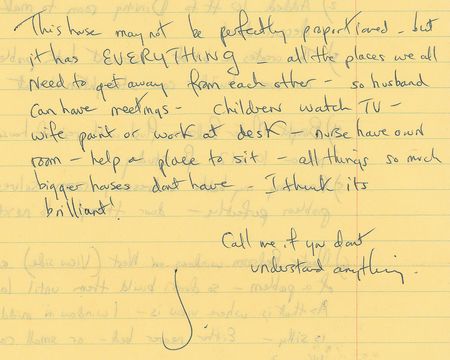 This house may not be perfectly proportioned - but
it has EVERYTHING - all the places we all
need to get away from each other - so husband
can have meetings - children watch TV -
wife paint or work at desk - nurse have own
room - help a place to sit - all things so much
bigger houses dont have - I think its
brilliant!
Call me if you dont
understand anything.
J.